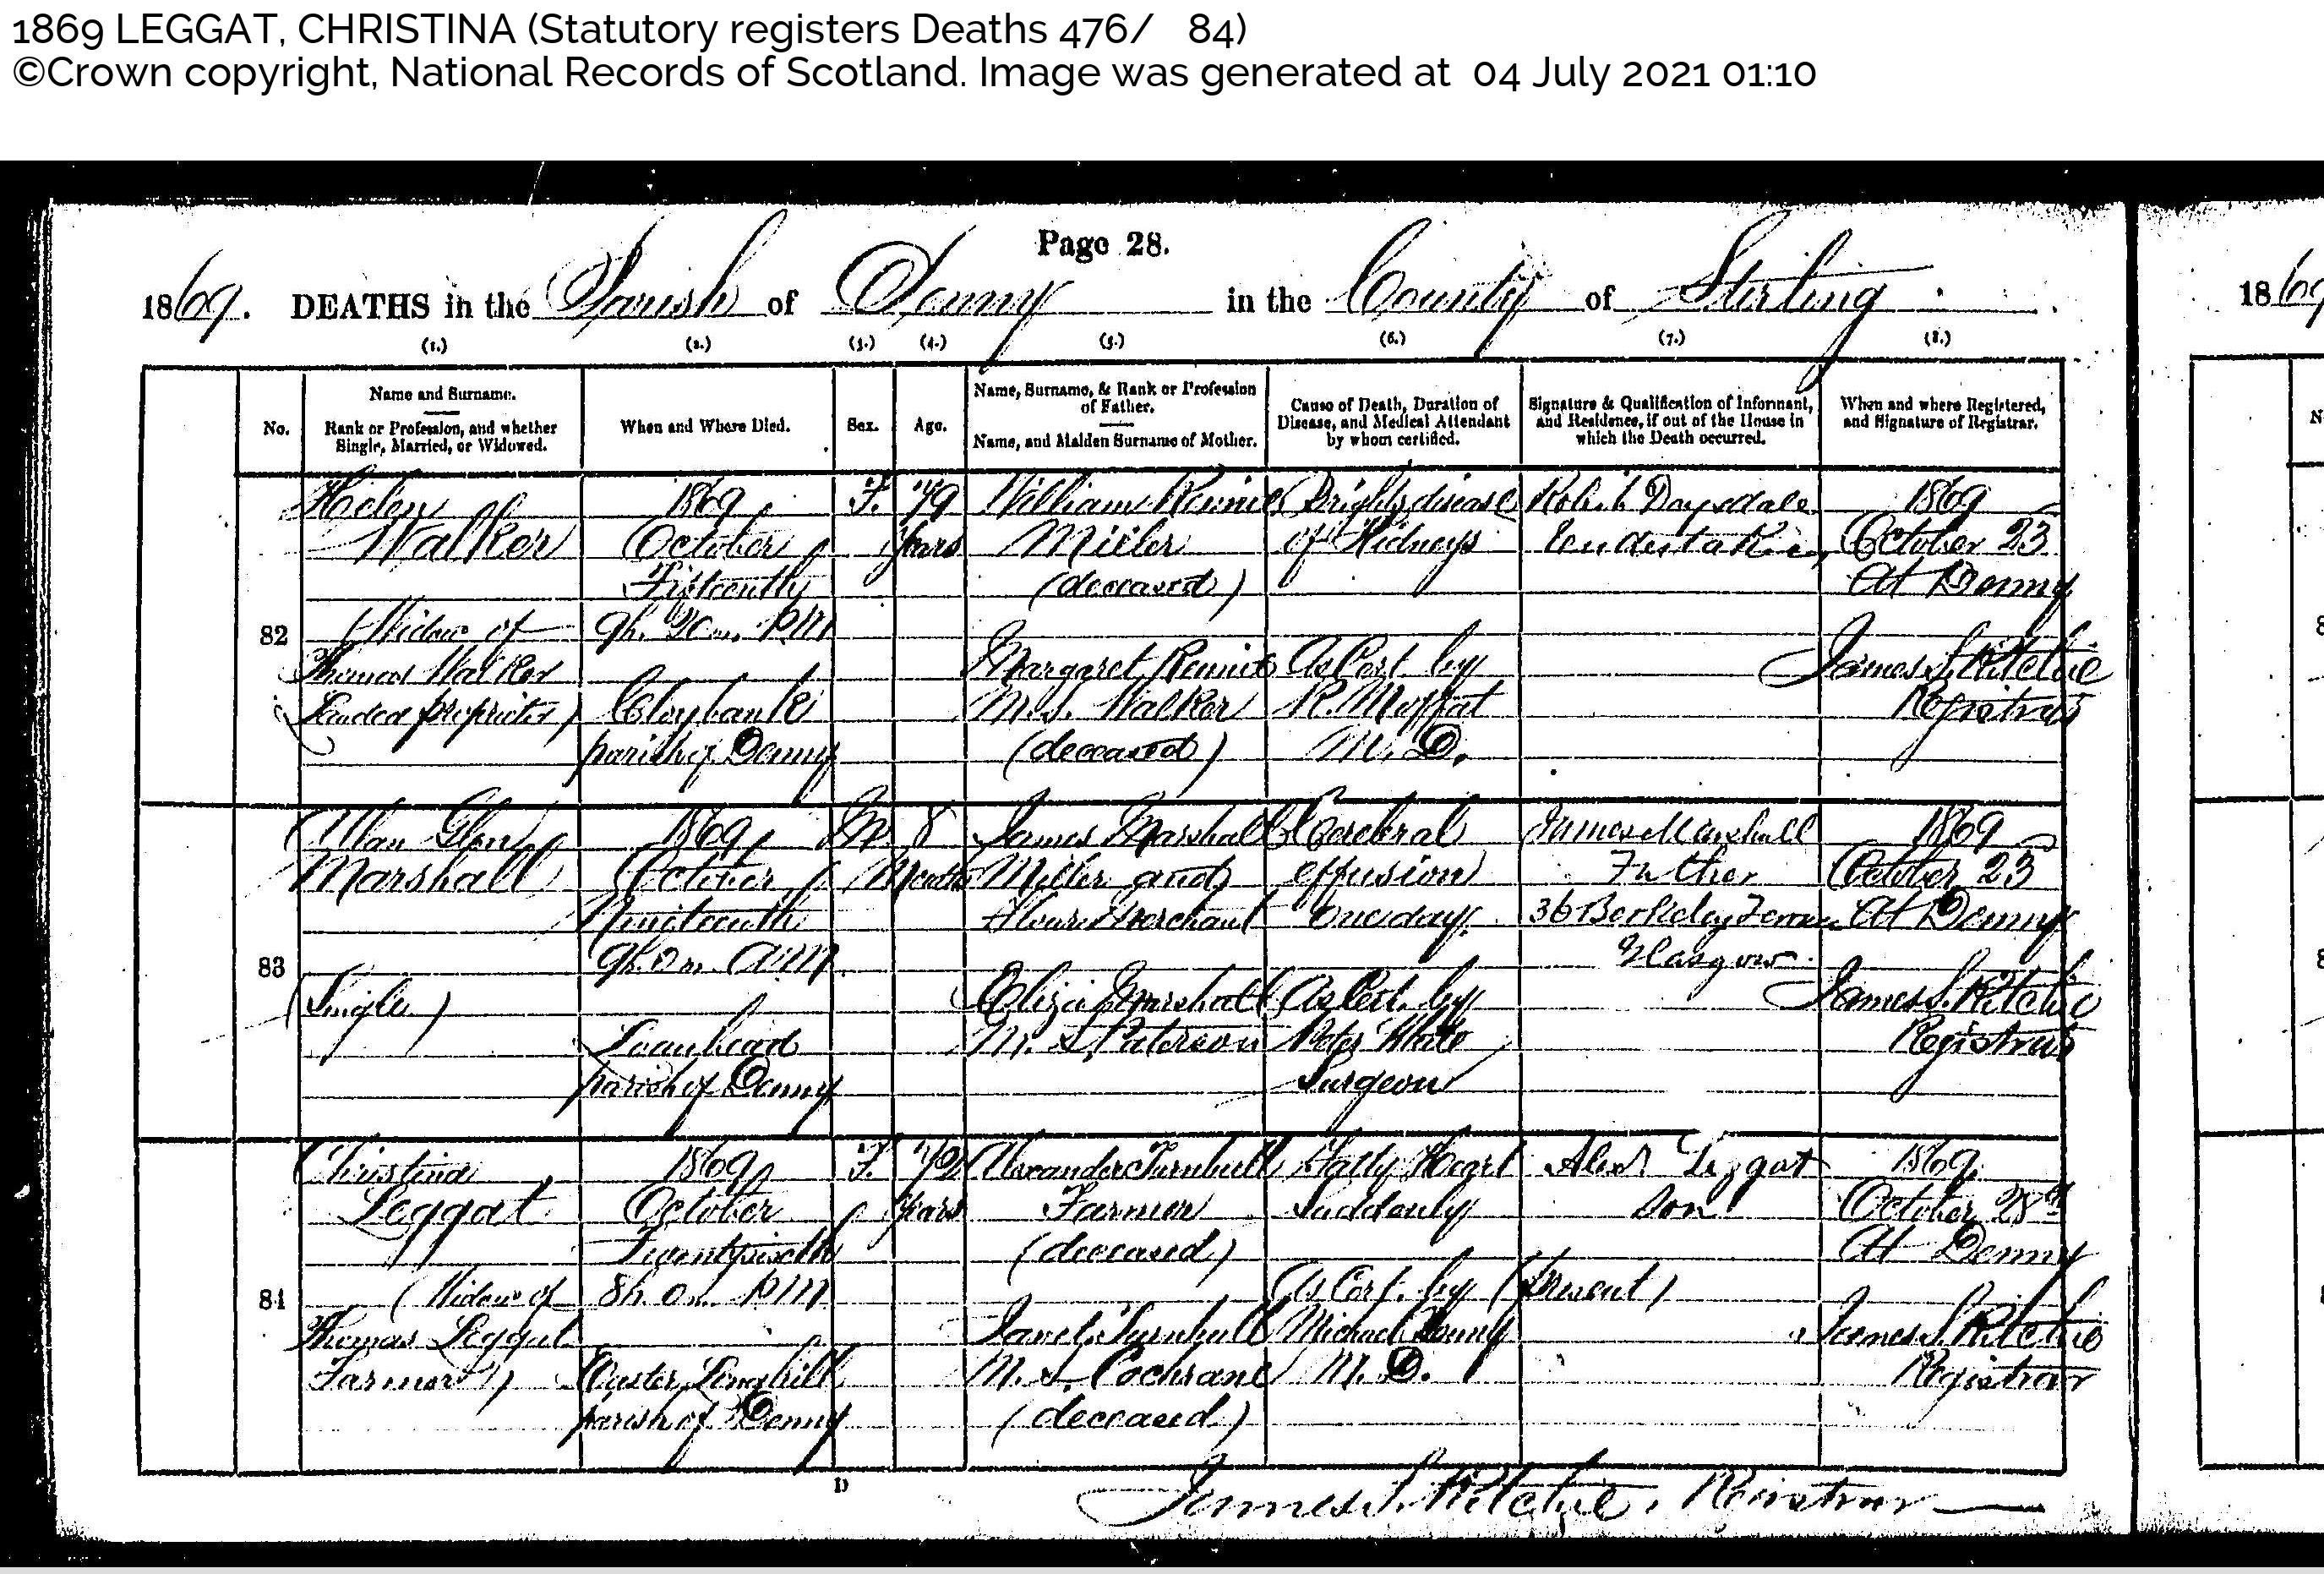 1869 LEGGAT, CHRISTINA (Statutory registers Deaths 476/ 84)
©Crown copyright, National Records of Scotland. Image was generated at 04 July 2021 01:10
Page 28.
1869. DEATHS in the Parish of Denny in the County of Stirling
(1.) (2.) (3.) (4.) (5.) (6.) (7.) (8.)
No.
Name and Surname.
Rank or Profession, and whether
Single, Married, or Widowed.
When and Where Died.
Sex.
Age.
Name, Surname, & Rank or Profession
of Father.
Name, and Maiden Surname of Mother.
Cause of Death, Duration of
Disease, and Medical Attendant
by whom certified.
Signature & Qualification of Informant,
and Residence, if out of the House in
which the Death occurred.
When and where Registered,
and Signature of Registrar.
82
Helen
Walker
(Widow of
Thomas Walker
Landed proprietor)
1869,
October
Fifteenth
9h. m. PM
Cloybank
parish of Denny
F.
79
years
William Rennie
Miller
(deceased)
Margaret Rennie
M.S. Walker
(deceased)
Brights disease
of Kidneys
As Cert. by
R. Moffat
M.D.
Robert Drysdale
Undertaker
1869
October 23
At Denny
James S. Ritchie
Registrar
83
Allan Glen
Marshall
(Single)
1869,
October
Nineteenth
9h. 0m. AM.
Loanhead
parish of Denny
M.
8
Months
James Marshall
Miller and
Flour Merchant
Eliza Marshall
M.S. Paterson
Cerebral
effusion
one day.
As Cert. by
Surgeon
James Marshall
Father
36 Berkeley Terrace
Glasgow.
1869
October 23
At Denny
James S. Ritchie
Registrar
84
Christina
Leggat
(Widow of
Thomas Leggat
Farmer)
1869,
October
Twentysixth
8h. 0m. PM
Easter
parish of Denny
F.
72
years
Alexander Turnbull
Farmer
(deceased)
Janet Turnbull
M.S. Cochrane
(deceased)
Fatty Heart
Suddenly
As Cert. by
Michael
M.D.
Alexr Leggat
Son
(Present)
1869,
October 28th
At Denny
James S. Ritchie
Registrar
D
James S. Ritchie, Registrar
1869